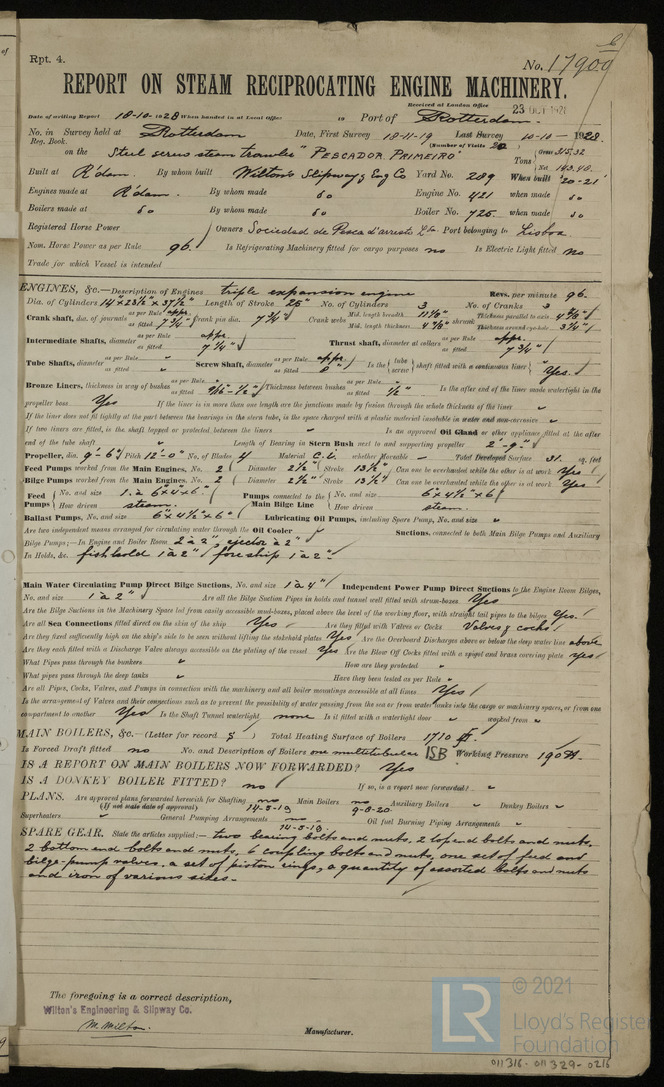 Rpt. 4.
No. 17900
REPORT ON STEAM RECIPROCATING ENGINE MACHINERY.
Received at London Office 23 OCT 1928
Date of writing Report 18-10-1928 When handed in at Local Office 19 Port of Rotterdam.
No. in Survey held at Rotterdam Date, First Survey 18-11-19 Last Survey 10-10-1928.
Reg. Book. (Number of Visits 20)
on the Steel screw steam trawler "PESCADOR PRIMEIRO" Tons Gross 315.32 Net 143.40
Built at R'dam. By whom built Wilton's Slipway & Eng Co Yard No. 289 When built '20-21'
Engines made at R'dam. By whom made do Engine No. 421 when made do
Boilers made at do By whom made do Boiler No. 725 when made do
Registered Horse Power Owners Sociedad de Pesca d'arresto Lda. Port belonging to Lisboa.
Nom. Horse Power as per Rule 96. Is Refrigerating Machinery fitted for cargo purposes no Is Electric Light fitted no
Trade for which Vessel is intended
ENGINES, &c.—Description of Engines triple expansion engine Revs. per minute 96.
Dia. of Cylinders 14" x 23½" x 37½" Length of Stroke 25" No. of Cylinders 3 No. of Cranks 3
Crank shaft, dia. of journals as per Rule appr. as fitted 7¾" Crank pin dia. 7¾" Crank webs Mid. length breadth Mid. length thickness shrunk Thickness parallel to axis Thickness around eye-hole
Intermediate Shafts, diameter as per Rule appr. as fitted 7¼" Thrust shaft, diameter at collars as per Rule appr. as fitted 7¾"
Tube Shafts, diameter as per Rule " as fitted " Screw Shaft, diameter as per Rule appr. as fitted 8" Is the tube screw shaft fitted with a continuous liner Yes.
Bronze Liners, thickness in way of bushes as per Rule " as fitted Thickness between bushes as per Rule " as fitted ½" Is the after end of the liner made watertight in the
propeller boss Yes If the liner is in more than one length are the junctions made by fusion through the whole thickness of the liner "
If the liner does not fit tightly at the part between the bearings in the stern tube, is the space charged with a plastic material insoluble in water and non-corrosive "
If two liners are fitted, is the shaft lapped or protected between the liners " Is an approved Oil Gland or other appliance fitted at the after
end of the tube shaft " Length of Bearing in Stern Bush next to and supporting propeller 2'-9"
Propeller, dia. 9'-6" Pitch 12'-0" No. of Blades 4 Material C.i. whether Moveable – Total Developed Surface 31. sq. feet
Feed Pumps worked from the Main Engines, No. 2 Diameter 2½" Stroke 13½" Can one be overhauled while the other is at work Yes
Bilge Pumps worked from the Main Engines, No. 2 Diameter 2½" Stroke 13½" Can one be overhauled while the other is at work Yes
Feed Pumps No. and size 1 à 6 x 4 x 6" How driven steam Pumps connected to the Main Bilge Line No. and size 6 x 4½" x 6 How driven steam.
Ballast Pumps, No. and size 6 x 4½" x 6" Lubricating Oil Pumps, including Spare Pump, No. and size "
Are two independent means arranged for circulating water through the Oil Cooler " Suctions, connected to both Main Bilge Pumps and Auxiliary
Bilge Pumps;—In Engine and Boiler Room 2 à 2", ejector à 2"
In Holds, &c. fishhold 1 à 2" foreship 1 à 2"
Main Water Circulating Pump Direct Bilge Suctions, No. and size 1 à 4" Independent Power Pump Direct Suctions to the Engine Room Bilges,
No. and size 1 à 2" Are all the Bilge Suction Pipes in holds and tunnel well fitted with strum-boxes Yes
Are the Bilge Suctions in the Machinery Space led from easily accessible mud-boxes, placed above the level of the working floor, with straight tail pipes to the bilges Yes.
Are all Sea Connections fitted direct on the skin of the ship Yes Are they fitted with Valves or Cocks Valves & cocks
Are they fixed sufficiently high on the ship's side to be seen without lifting the stokehold plates Yes Are the Overboard Discharges above or below the deep water line above
Are they each fitted with a Discharge Valve always accessible on the plating of the vessel Yes Are the Blow Off Cocks fitted with a spigot and brass covering plate Yes
What Pipes pass through the bunkers " How are they protected "
What pipes pass through the deep tanks " Have they been tested as per Rule "
Are all Pipes, Cocks, Valves, and Pumps in connection with the machinery and all boiler mountings accessible at all times Yes
Is the arrangement of Valves and their connections such as to prevent the possibility of water passing from the sea or from water tanks into the cargo or machinery spaces, or from one
compartment to another Yes Is the Shaft Tunnel watertight none Is it fitted with a watertight door " worked from "
MAIN BOILERS, &c.—(Letter for record S) Total Heating Surface of Boilers 1710
Is Forced Draft fitted no No. and Description of Boilers one multitubular 1SB Working Pressure 190
IS A REPORT ON MAIN BOILERS NOW FORWARDED? Yes
IS A DONKEY BOILER FITTED? no If so, is a report now forwarded? "
PLANS. Are approved plans forwarded herewith for Shafting no 14-5-19 Main Boilers no 9-8-20 Auxiliary Boilers " Donkey Boilers "
(If not state date of approval)
Superheaters " General Pumping Arrangements no 14-5-19 Oil fuel Burning Piping Arrangements "
SPARE GEAR. State the articles supplied:— two bearing bolts and nuts, 2 top end bolts and nuts,
2 bottom end bolts and nuts, 6 coupling bolts and nuts, one set of feed and
bilge-pump valves, a set of piston rings, a quantity of assorted bolts and nuts
and iron of various sizes.
The foregoing is a correct description,
Wilton's Engineering & Slipway Co.
M. Wilton.
Manufacturer.
LR
© 2021
Lloyd's Register
Foundation
011316-011329-0216